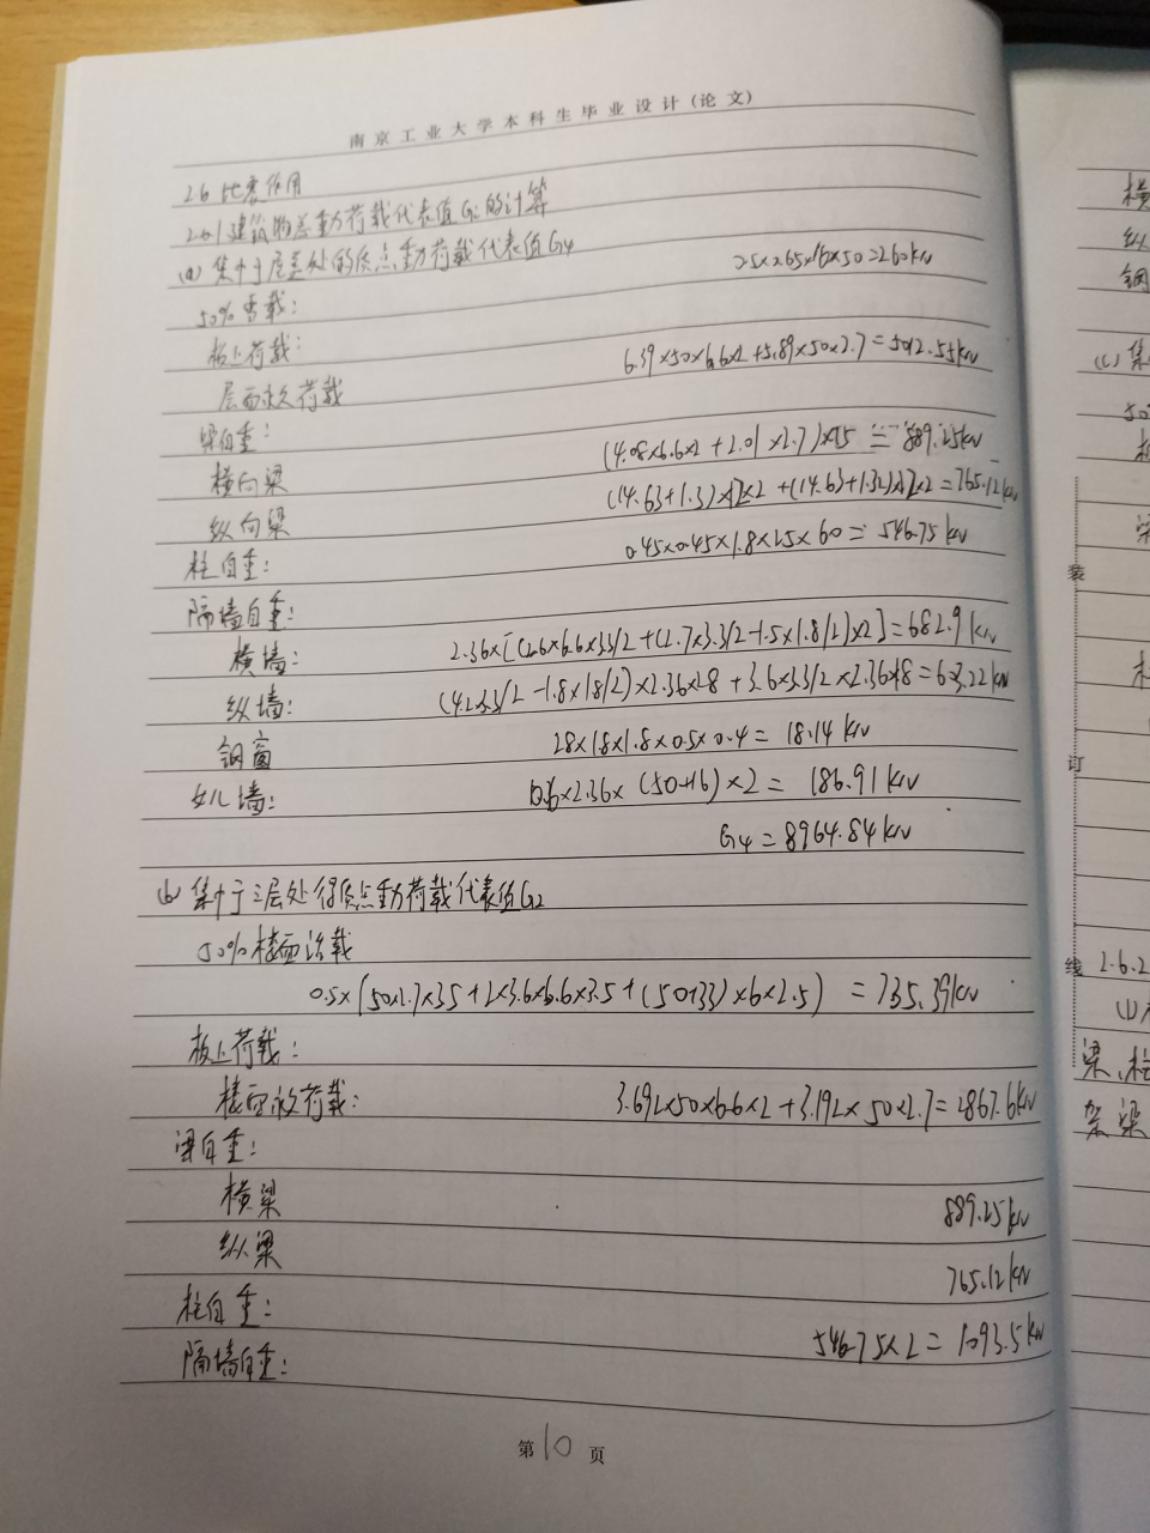 南京工业大学本科生毕业设计(论文)
2.6 地震作用
2.6.1建筑物总重力荷载代表值Gi的计算
(a) 集中于屋盖处的质点重力荷载代表值G4
50%雪载:
0.5×0.65×16×50=260kN
板上荷载:
屋面永久荷载
6.39×50×6.6×2+5.89×50×2.7=5012.55kN
梁自重:
横向梁
(4.08×6.6×2+2.01×2.7)×15=889.25kN
纵向梁
柱自重:
0.45×0.45×1.8×25×60=546.75kN
隔墙自重:
横墙:
2.36×[(26×6.6×3.3/2+(2.7×3.3/2-1.5×1.8/2)×2]=682.9kN
纵墙:
钢窗
28×1.8×1.8×0.5×0.4=18.14kN
女儿墙:
0.6×2.36×(50+16)×2=186.91kN
G4=8964.84kN
(b) 集中于三层处得质点重力荷载代表值G2
50%楼面活载
0.5×(50×2.7×3.5+2×3.6×6.6×3.5+(50+33)×6×2.5)=735.39kN
板上荷载:
楼面永久荷载:
3.692×50×6.6×2+3.192×50×2.7=2867.6kN
梁自重:
横梁
889.25kN
纵梁
765.12kN
柱自重:
546.75×2=1093.5kN
隔墙自重:
第10页
装
订
线
横
纵
钢
(c) 集
50
2.6.2
(1)
梁、柱
架梁